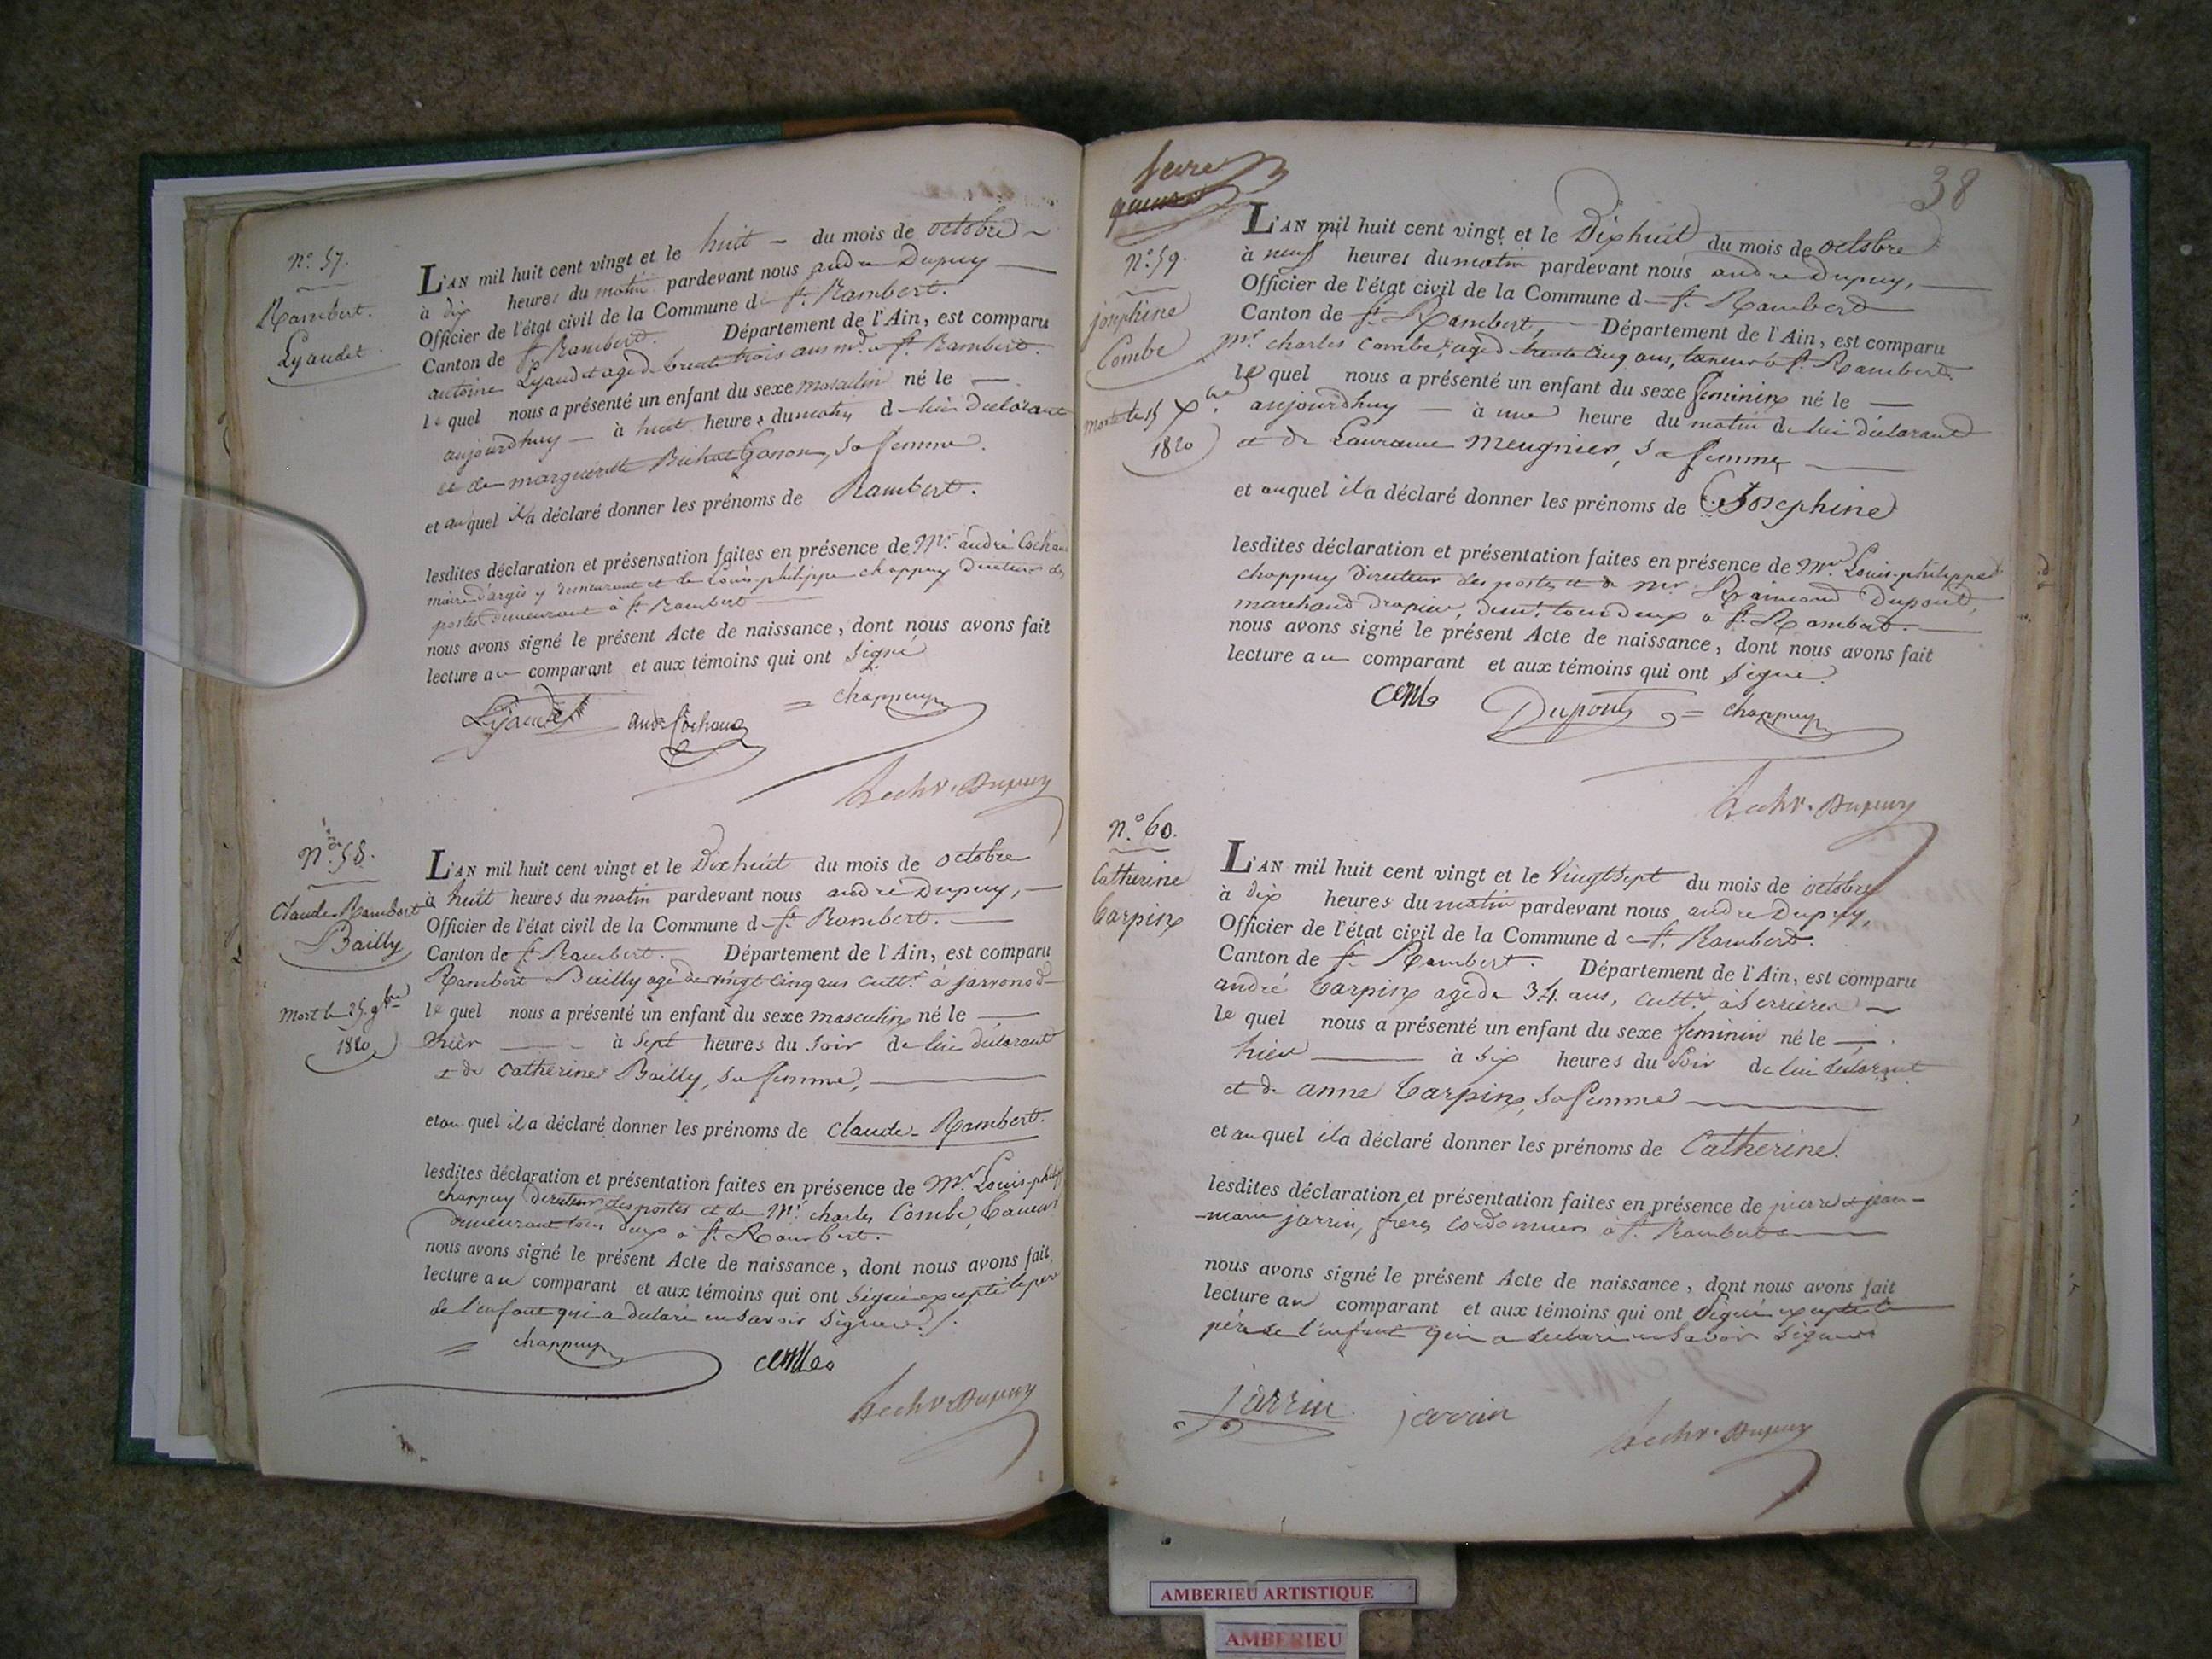 N.° 57.
Rambert.
Lyaudet
L'AN mil huit cent vingt et le huit - du mois de octobre
à dix heures du matin pardevant nous andre Dupuy
Officier de l'état civil de la Commune d St. Rambert.
Canton de St. Rambert. Département de l'Ain, est comparu
antoine Lyaudet agé de trente trois ans md. a St. Rambert.
le quel nous a présenté un enfant du sexe masculin né le
aujourdhuy à huit heures du matin de lui déclarant
et de marguerette Bichat Gonon, sa femme.
et au quel il a déclaré donner les prénoms de Rambert.
lesdites déclaration et présensation faites en présence de Mr. andré Cochand
maire d'argis y demeurant et de Louis philippe chappuy Directeur des
postes demeurant à St. Rambert
nous avons signé le présent Acte de naissance, dont nous avons fait
lecture au comparant et aux témoins qui ont signé
Lyaudet andr Cochand = chappuy
Dupuy
N.° 58.
Claude-Rambert
Bailly
mort le 25. 9bre
1820
L'AN mil huit cent vingt et le Dixhuit du mois de octobre
à huit heures du matin pardevant nous andré Dupuy,
Officier de l'état civil de la Commune d St. Rambert.
Canton de St. Rambert. Département de l'Ain, est comparu
Rambert Bailly agé de vingt cinq ans cultr. à javronod
le quel nous a présenté un enfant du sexe masculin né le
hier à sept heures du soir de lui déclarant
et de catherine Bailly, sa femme,
et au quel il a déclaré donner les prénoms de Claude-Rambert.
lesdites déclaration et présentation faites en présence de Mr. Louis-philippe
chappuy directeur des postes et de Mr. charles Combe, taneur
demeurant tous deux à St. Rambert.
nous avons signé le présent Acte de naissance, dont nous avons fait
lecture au comparant et aux témoins qui ont signé excepté le père
de l'enfant qui a déclaré ne savoir signer
= chappuy combe
Dupuy
38
N.° 59.
josephine
Combe
morte le 15 Xbre
1820
L'AN mil huit cent vingt et le Dixhuit du mois de octobre
à neuf heures du matin pardevant nous andre Dupuy,
Officier de l'état civil de la Commune d St. Rambert
Canton de St. Rambert, Département de l'Ain, est comparu
mr. charles Combe, agé de trente cinq ans, taneur à St. Rambert
le quel nous a présenté un enfant du sexe feminin né le
aujourdhuy à une heure du matin de lui déclarant
et de Laurance Meugnier, sa femme
et au quel il a déclaré donner les prénoms de Josephine
lesdites déclaration et présentation faites en présence de Mr. Louis-philippe
chappuy directeur des postes et de Mr. Raimond Dupont,
marchand drapier, demt. tous deux à St. Rambert.
nous avons signé le présent Acte de naissance, dont nous avons fait
lecture au comparant et aux témoins qui ont signé.
combe Dupont = chappuy
Dupuy
N.° 60.
Catherine
Carpin
L'AN mil huit cent vingt et le Vingt sept du mois de octobre
à dix heures du matin pardevant nous andre Dupuy,
Officier de l'état civil de la Commune d St. Rambert.
Canton de St. Rambert. Département de l'Ain, est comparu
andré Carpin agé de 34 ans, cultr. à Serrieres
le quel nous a présenté un enfant du sexe feminin né le
hier à six heures du soir de lui déclarant
et de anne Carpin, sa femme
et au quel il a déclaré donner les prénoms de Catherine.
lesdites déclaration et présentation faites en présence de pierre & jean-
-marie jarrin, freres Cordonniers à St. Rambert
nous avons signé le présent Acte de naissance, dont nous avons fait
lecture au comparant et aux témoins qui ont signé excepté le
père de l'enfant qui a déclaré ne savoir signer
jarrin jarrin
Dupuy
AMBERIEU ARTISTIQUE
AMBERIEU